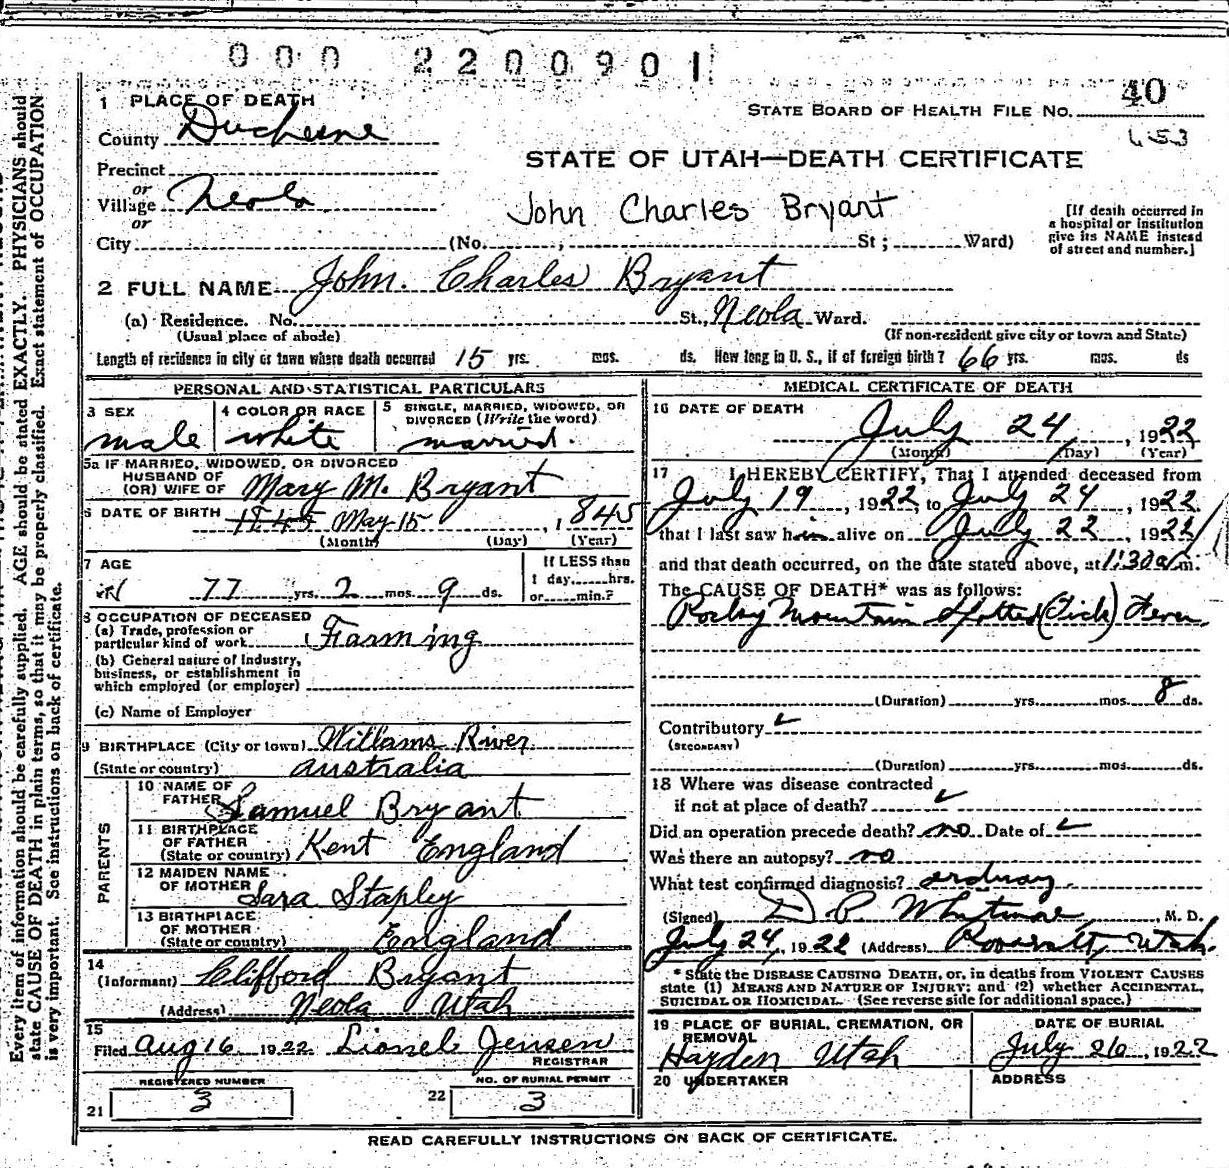 000 2200901
1 PLACE OF DEATH
STATE BOARD OF HEALTH FILE No. 40
County Duchesne
653
STATE OF UTAH—DEATH CERTIFICATE
Precinct
or
Village Neola
or
John Charles Bryant
[If death occurred in
a hospital or institution
give its NAME instead
of street and number.]
City (No. , St ; Ward)
2 FULL NAME John. Charles Bryant
(a) Residence. No. St., Neola Ward.
(Usual place of abode) (If non-resident give city or town and State)
Length of residence in city or town where death occurred 15 yrs. mos. ds. How long in U. S., if of foreign birth? 66 yrs. mos. ds
PERSONAL AND STATISTICAL PARTICULARS
3 SEX
male
4 COLOR OR RACE
white
5 SINGLE, MARRIED, WIDOWED, OR
DIVORCED (Write the word)
married.
5a IF MARRIED, WIDOWED, OR DIVORCED
HUSBAND OF
(OR) WIFE OF Mary M. Bryant
6 DATE OF BIRTH 1845 May 15 , 1845
(Month) (Day) (Year)
7 AGE
77 yrs. 2 mos. 9 ds.
If LESS than
1 day hrs.
or min.?
8 OCCUPATION OF DECEASED
(a) Trade, profession or
particular kind of work Farming
(b) General nature of Industry,
business, or establishment in
which employed (or employer)
(c) Name of Employer
9 BIRTHPLACE (City or town) Willams River
(State or country) Australia
PARENTS
10 NAME OF
FATHER Samuel Bryant
11 BIRTHPLACE
OF FATHER
(State or country) Kent England
12 MAIDEN NAME
OF MOTHER Sara Stapley
13 BIRTHPLACE
OF MOTHER
(State or country) England
14
(Informant) Clifford Bryant
(Address) Neola Utah
15
Filed Aug 16 1922 Lionel Jensen
REGISTRAR
REGISTERED NUMBER
21 3
NO. OF BURIAL PERMIT
22 3
MEDICAL CERTIFICATE OF DEATH
16 DATE OF DEATH
July 24 , 1922
(Month) (Day) (Year)
17 I HEREBY CERTIFY, That I attended deceased from
July 19 , 1922, to July 24 , 1922.
that I last saw him alive on July 22 , 1922
and that death occurred, on the date stated above, at 1:30 a m.
The CAUSE OF DEATH* was as follows:
Rocky Mountain Spotted (Tick) Fever.
(Duration) yrs. mos. 8 ds.
Contributory
(SECONDARY)
(Duration) yrs. mos. ds.
18 Where was disease contracted
if not at place of death?
Did an operation precede death? no Date of
Was there an autopsy? no
What test confirmed diagnosis? ordinary.
(Signed) D. P. Whitmore , M. D.
July 24, 1922 (Address) Roosevelt, Utah.
* State the DISEASE CAUSING DEATH, or, in deaths from VIOLENT CAUSES
state (1) MEANS AND NATURE OF INJURY; and (2) whether ACCIDENTAL,
SUICIDAL OR HOMICIDAL. (See reverse side for additional space.)
19 PLACE OF BURIAL, CREMATION, OR
REMOVAL
Hayden Utah
DATE OF BURIAL
July 26, 1922
20 UNDERTAKER
ADDRESS
READ CAREFULLY INSTRUCTIONS ON BACK OF CERTIFICATE.
Every item of information should be carefully supplied. AGE should be stated EXACTLY. PHYSICIANS should
state CAUSE OF DEATH in plain terms, so that it may be properly classified. Exact statement of OCCUPATION
is very important. See instructions on back of certificate.